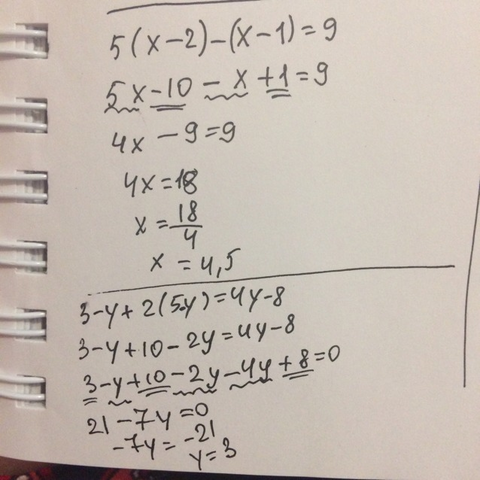 5(x-2)-(x-1)=9
5x-10-x+1=9
4x-9=9
4x=18
x=18/4
x=4,5
3-y+2(5-y)=4y-8
3-y+10-2y=4y-8
3-y+10-2y-4y+8=0
21-7y=0
-7y=-21
y=3